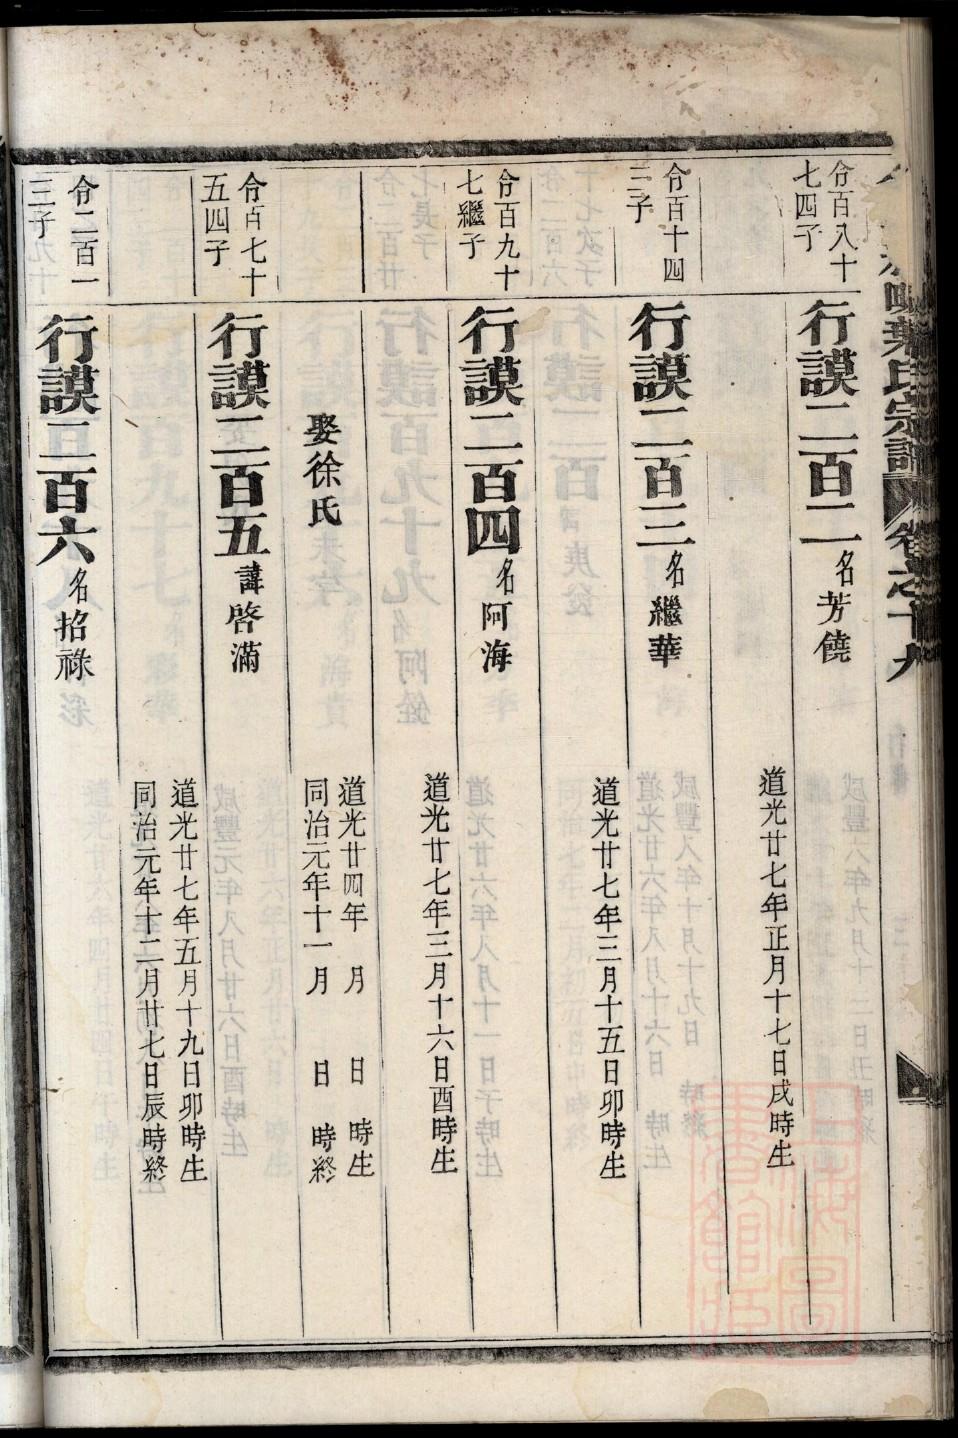 葉氏宗譜 卷之十九
令百八十
七四子
行謨二百二 名芳饒
道光廿七年正月十七日戌時生
令百十四
三子
行謨二百三 名繼華
道光廿七年三月十五日卯時生
令百九十
七繼子
行謨二百四 名阿海
道光廿七年三月十六日酉時生
娶徐氏
道光廿四年 月 日 時生
同治元年十一月 日 時終
令百七十
五四子
行謨二百五 諱啓滿
道光廿七年五月十九日卯時生
同治元年十二月廿七日辰時終
令二百一
三子
行謨二百六 名招祿
上海圖書館藏